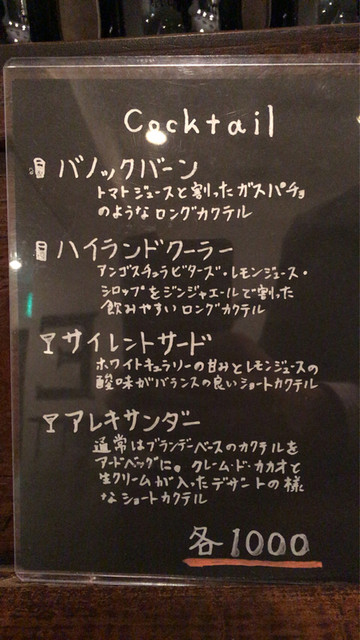 Cocktail
バノックバーン
トマトジュースと割ったガスパチョ
のようなロングカクテル
ハイランドクーラー
アンゴスチュラビターズ・レモンジュース・
シロップをジンジャエールで割った
飲みやすいロングカクテル
サイレントサード
ホワイトキュラソーの甘みとレモンジュースの
酸味がバランスの良いショートカクテル
アレキサンダー
通常はブランデーベースのカクテルを
アードベッグに。クレーム・ド・カカオと
生クリームが入ったデザートの様
なショートカクテル
各1000